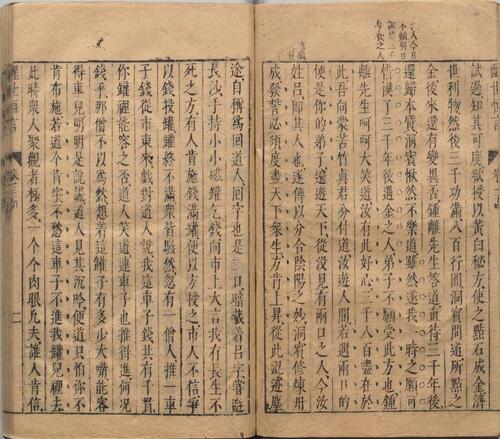 醒世恒言
試過知其可度欲授以黃白秘方使之點石成金濟
世利物然後三千功滿八百行圓洞賓問道所點之
金後來還有變異否鍾離先生答道直待三千年後
還歸本質洞賓愀然不樂道雖然遂我一時之願可
惜誤了三千年後遇金之人弟子不願受此方也鍾
離先生呵呵大笑道汝有此好心三千八百盡在於
此吾向蒙苦竹真君分付道汝遊人間若遇兩口的
便是你的弟子遍遊天下從沒見有兩口之人今汝
姓呂即其人也遂傳以分合陰陽之妙洞賓修煉丹
成發誓必須度盡天下衆生方肯上昇從此混迹塵
途自稱為回道人回字也是二口暗藏着呂字嘗遊
長沙手持小小磁罐乞錢向市上大言我有長生不
死之方有人肯施錢滿罐便以方授之市人不信爭
以錢投罐罐終不滿衆皆駭然忽有一僧人推一車
子錢從市東來戲對道人說我這車子錢共有千貫
你罐裡能容之否道人笑道連車子也推得進何况
錢乎那僧不以為然想着這罐子有多少大嘴能容
得車兒明明是說謊道人見其沉吟便道只怕你不
肯布施若道個肯字不愁這車子不進我罐兒裡去
此時衆人聚觀者極多一個個肉眼凡夫誰人肯信
醒世恒言
二